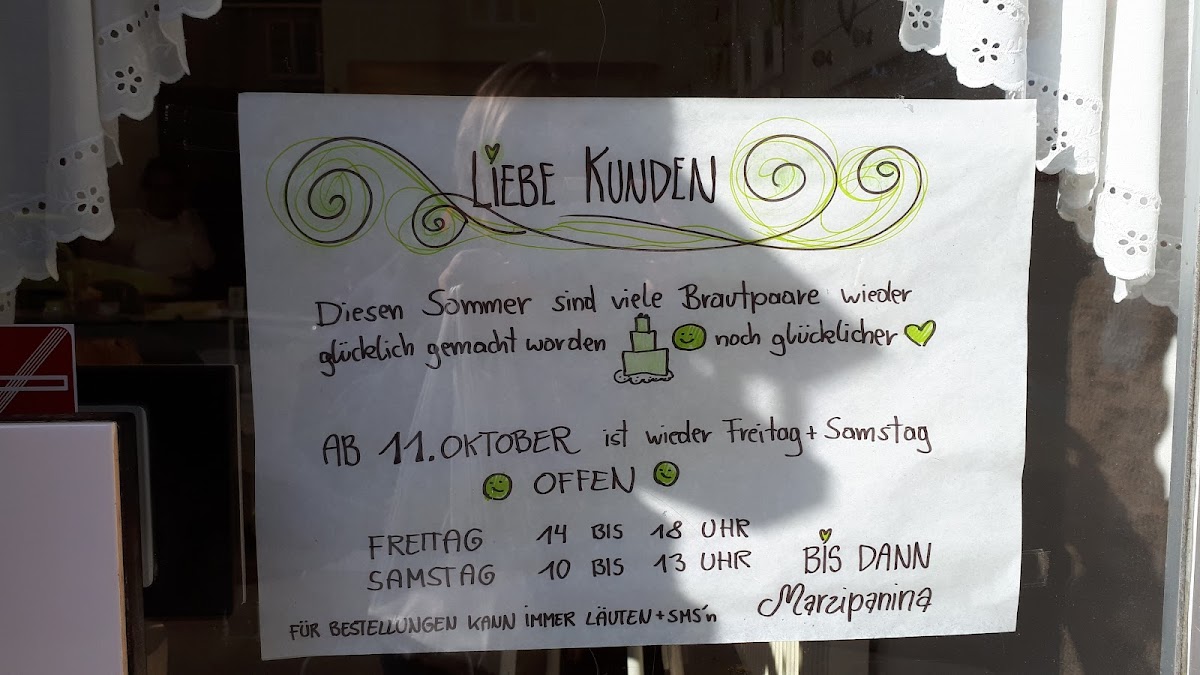 LIEBE KUNDEN
Diesen Sommer sind viele Brautpaare wieder
glücklich gemacht worden noch glücklicher
AB 11. OKTOBER ist wieder Freitag + Samstag
OFFEN
FREITAG 14 BIS 18 UHR
SAMSTAG 10 BIS 13 UHR
BIS DANN
Marzipanina
FÜR BESTELLUNGEN KANN IMMER LÄUTEN + SMS'n